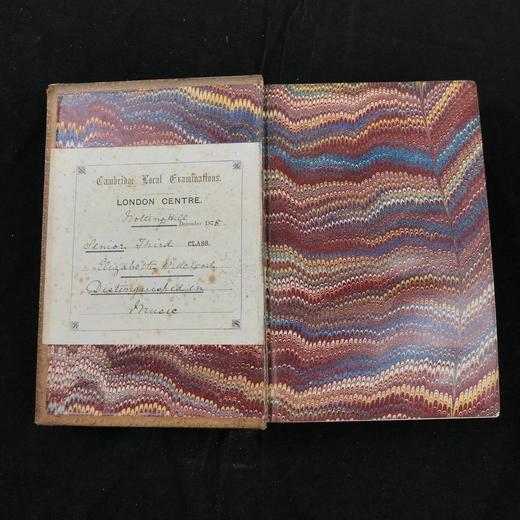 Cambridge Local Examinations.
LONDON CENTRE.
Notting Hill
December 1875
Senior Third CLASS.
Elizabeth
Distinguished in
Music